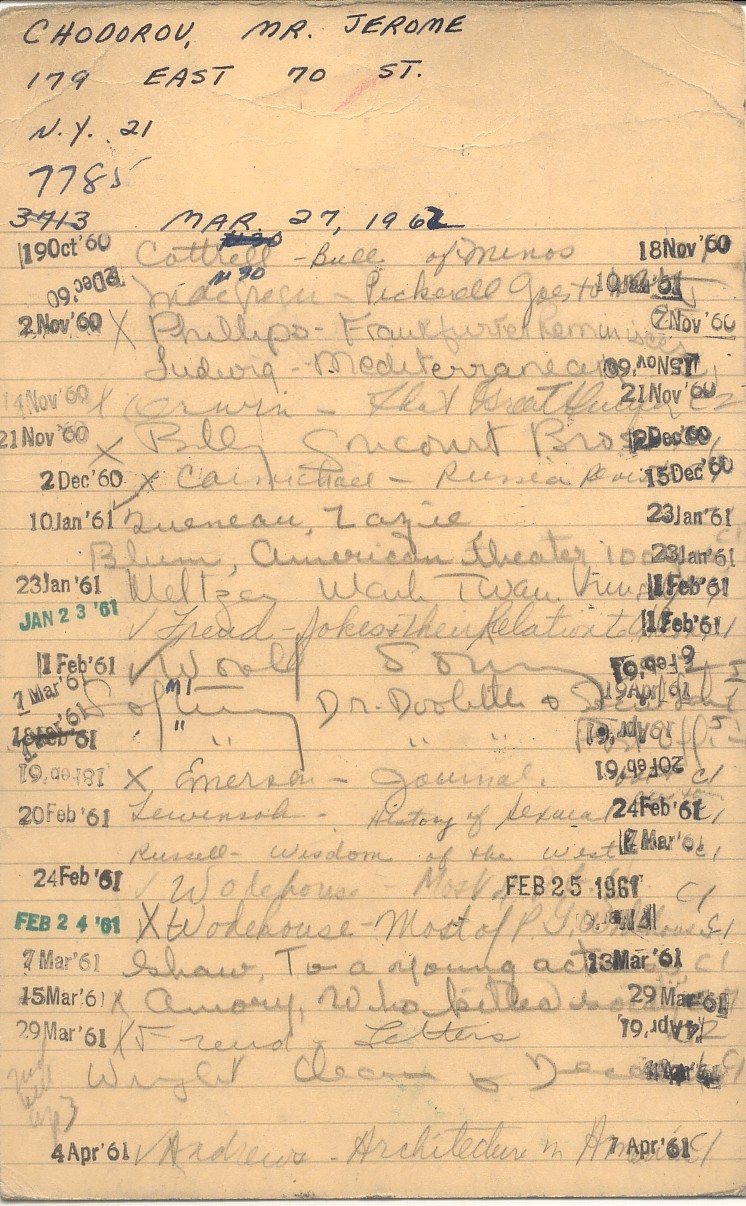 CHODOROV, MR. JEROME
179 EAST 70 ST.
N.Y. 21
7785
3713 MAR. 27, 1962
19 Oct '60 Cottrell - Bull of Minos 18 Nov '60
M 90
Dec '60 - Pickerell Goes to 10 Jan '61
2 Nov '60 X Phillips - Frankfurter Reminisces 7 Nov '60
Ludwig - Mediterranean 15 Nov '60
Nov '60 X - That Great 21 Nov '60
21 Nov '60 X Billy Goncourt Bros 2 Dec '60
2 Dec '60 X Carmichael - Russia 15 Dec '60
10 Jan '61 Queneau, Zazie 23 Jan '61
Blum, American theater 100 23 Jan '61 C1
23 Jan '61 Meltzer Mark Twain 1 Feb '61
JAN 23 '61 √ Freud - Jokes & their Relation to 1 Feb '61
1 Feb '61 √ Woolf 6 Feb '61
7 Mar '61 Lofting M1 Dr. Doolittle & 19 Apr '61
18 Feb '61 " " " " Post Office 19 Apr '61
18 Feb '61 X Emerson - Journal. 20 Feb '61 C1
20 Feb '61 Lewinsohn - History of Sexual 24 Feb '61 C1
Russell - Wisdom of the West 7 Mar '61 C1
24 Feb '61 √ Wodehouse - Most FEB 25 1961 C1
FEB 24 '61 X Wodehouse - Most of P.G. Wodehouse C1
7 Mar '61 Shaw, To a young actress 13 Mar '61 C1
15 Mar '61 X Amory, Who killed society 29 Mar '61
29 Mar '61 X Freud - Letters 4 Apr '61
Wright Clearing 4 Apr '61 C1
4 Apr '61 √ Andrews - Architecture in America 7 Apr '61 C1